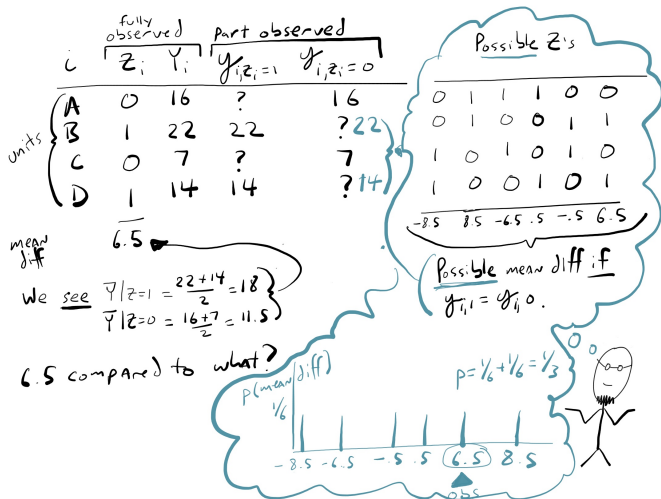 fully observed
part observed
i Zi Yi yi,zi=1 yi,zi=0
units
A 0 16 ? 16
B 1 22 22 ? 22
C 0 7 ? 7
D 1 14 14 ? 14
mean diff
6.5
We see Y|Z=1 = 22+14/2 = 18
Y|Z=0 = 16+7/2 = 11.5
6.5 compared to what?
Possible Z's
0 1 1 1 0 0
0 1 0 0 1 1
1 0 1 0 1 0
1 0 0 1 0 1
-8.5 8.5 -6.5 .5 -.5 6.5
Possible mean diff if
yi,1 = yi,0.
p(mean diff)
1/6
p = 1/6 + 1/6 = 1/3
-8.5 -6.5 -.5 .5 6.5 8.5
obs